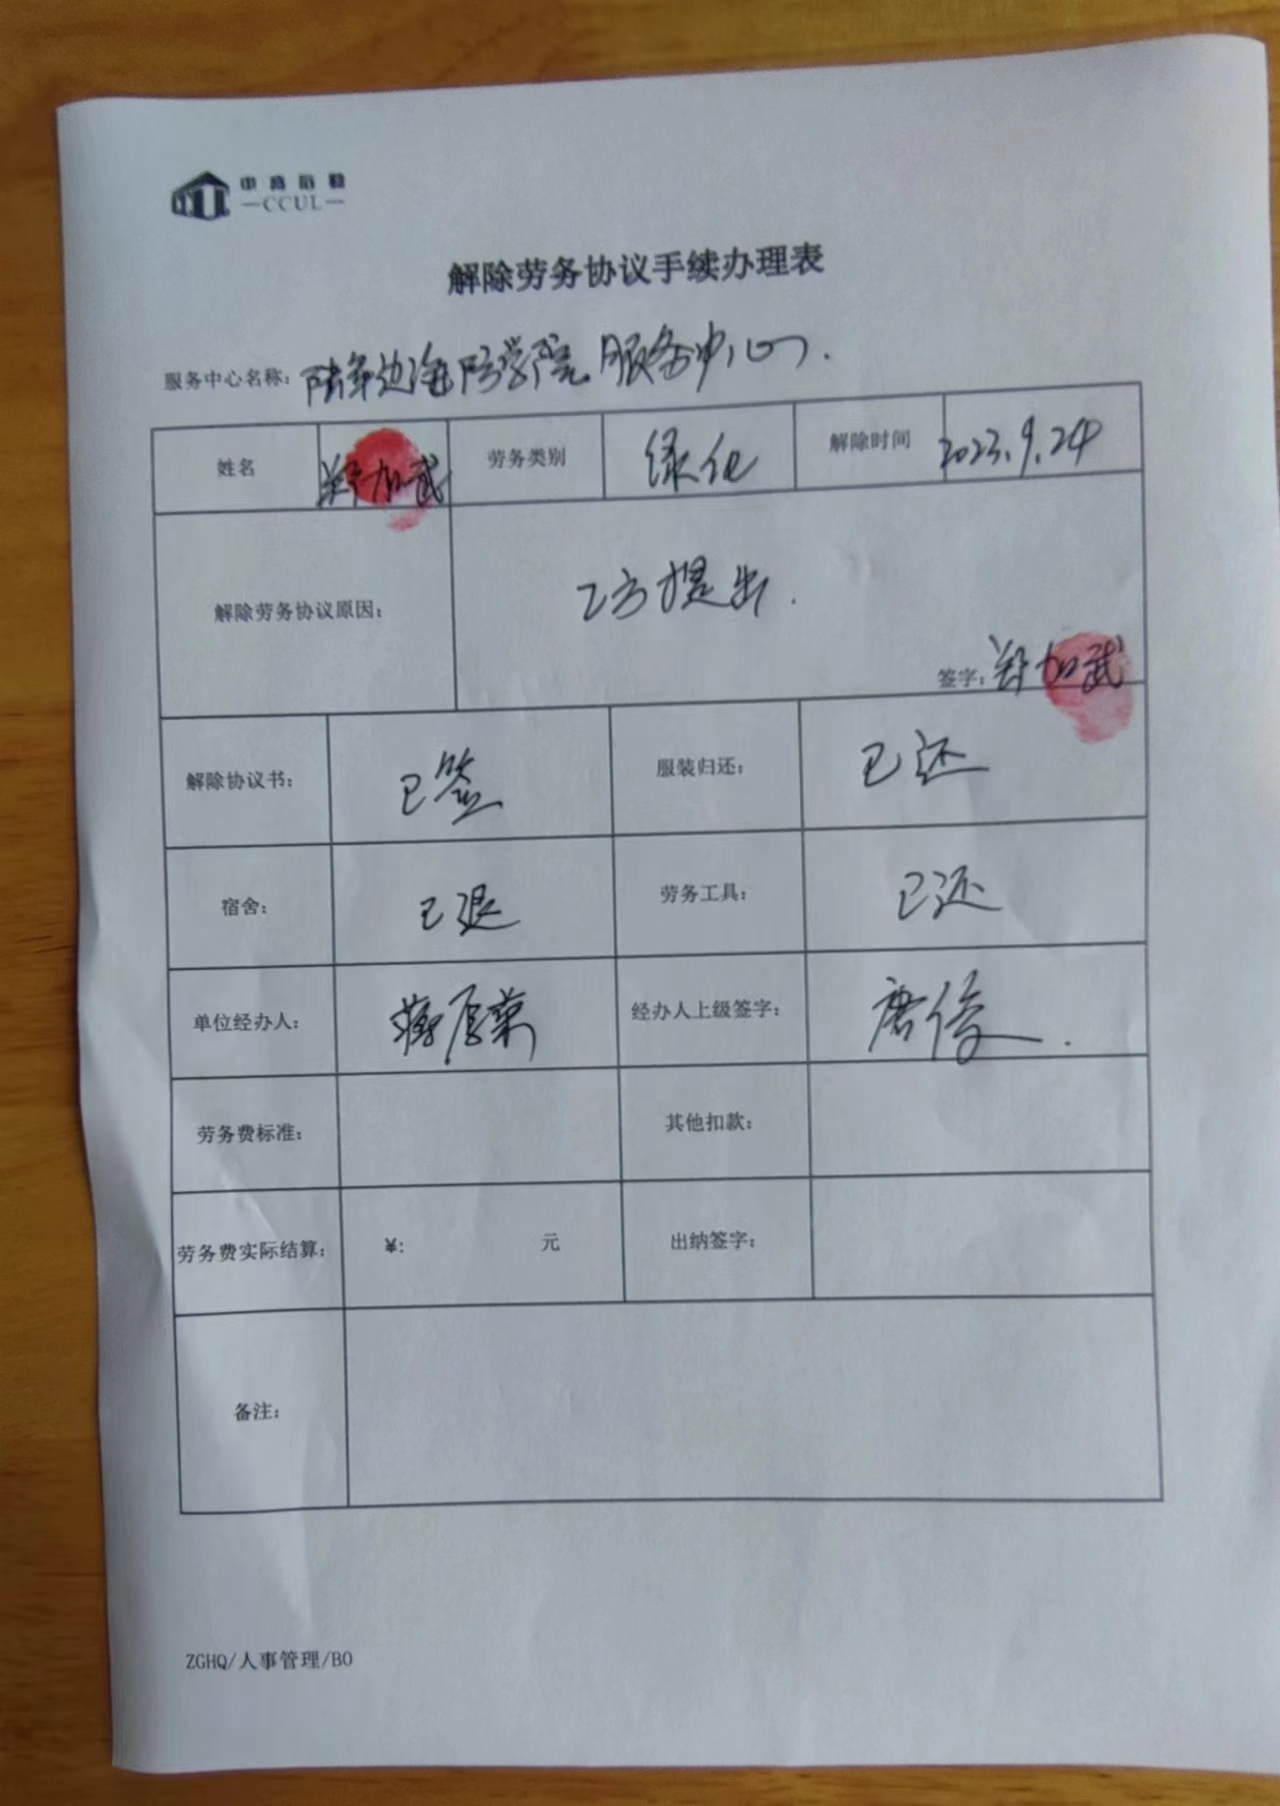 中高后勤
—CCUL—
解除劳务协议手续办理表
服务中心名称：陆军边海防学院服务中心.
姓名 郑加武 劳务类别 绿化 解除时间 2023.9.24
解除劳务协议原因： 乙方提出.
签字：郑加武
解除协议书： 已签 服装归还： 已还
宿舍： 已退 劳务工具： 已还
单位经办人： 经办人上级签字： 唐俊.
劳务费标准： 其他扣款：
劳务费实际结算： ¥: 元 出纳签字：
备注：
ZGHQ/人事管理/B0